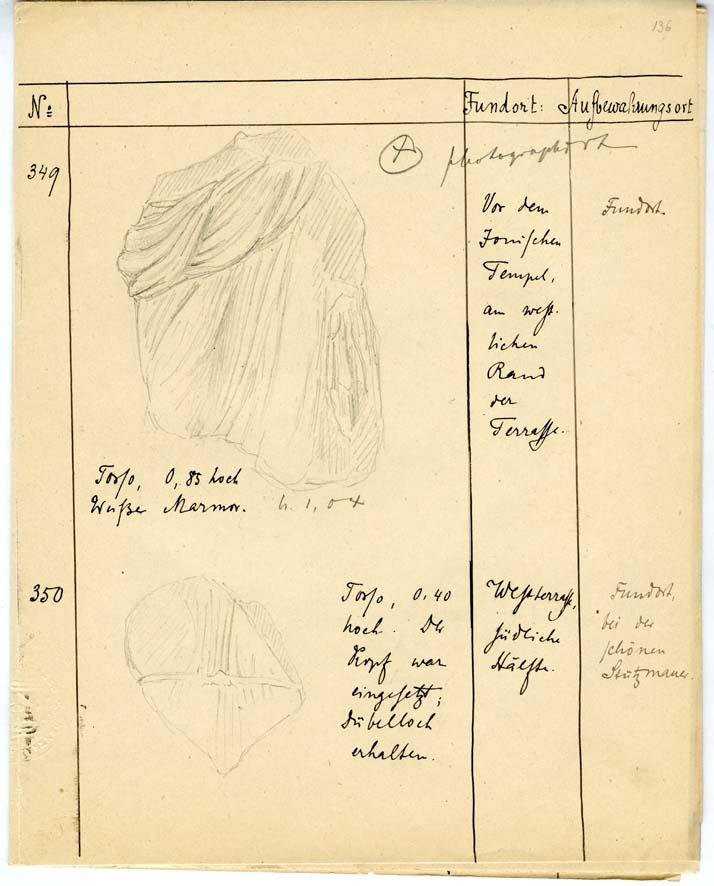 136
No Fundort: Aufbewahrungsort
349
photographirt
Vor dem
Jonischen
Tempel,
am west-
lichen
Rand
der
Terrasse.
Fundort.
Torso, 0,85 hoch
Weißer Marmor. h. 1,04
350
Torso, 0.40
hoch. Der
Kopf war
eingesetzt;
Dübelloch
erhalten.
Westterrasse,
südliche
Hälfte.
Fundort,
bei der
schönen
Stützmauer.